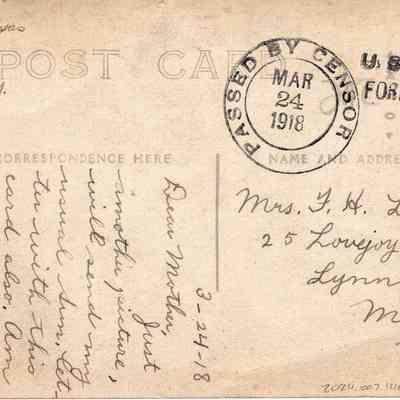 POST CA
PASSED BY CENSOR
MAR
24
1918
U.S
FOR
CORRESPONDENCE HERE
NAME AND ADDRE
3-24-18
Dear Mother,
Just
another picture,
will send my
usual Sun. Let-
ter with this
card also. Am
Mrs. F. H. L
25 Lovejoy
Lynn
M